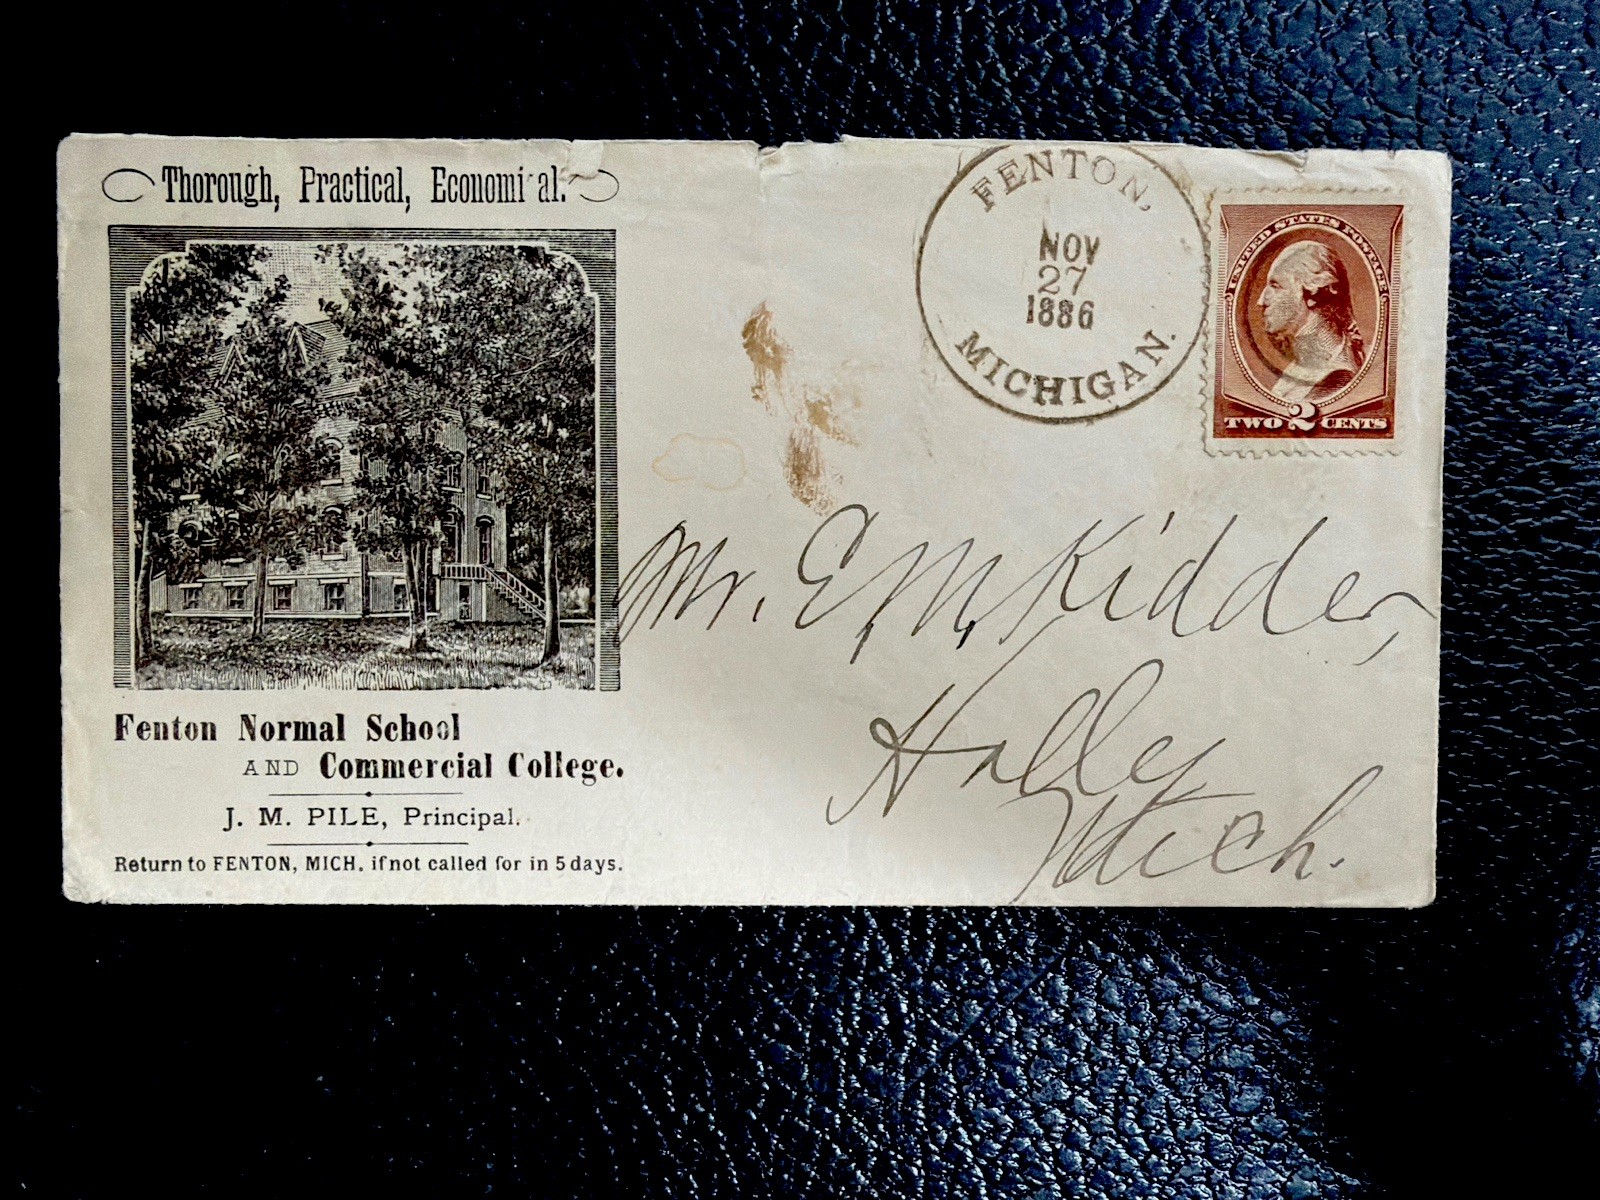 Thorough, Practical, Economical.
Fenton Normal School
AND Commercial College.
J. M. PILE, Principal.
Return to FENTON, MICH. if not called for in 5 days.
FENTON,
NOV
27
1886
MICHIGAN.
UNITED STATES POSTAGE
TWO 2 CENTS
Mr. E. M. Kidder,
Holly
Mich.